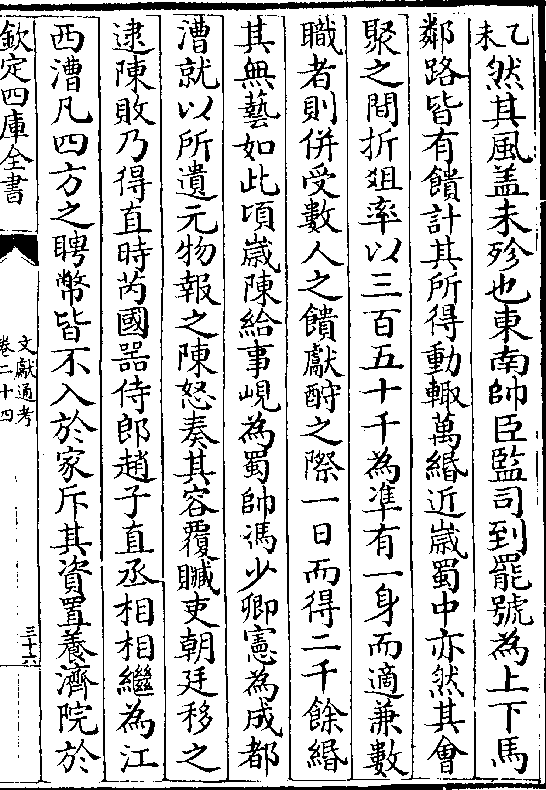 乙未然其風盖未殄也東南帥臣監司到罷號為上下馬
鄰路皆有饋計其所得動輙萬緡近嵗蜀中亦然其會
聚之間折俎率以三百五十千為凖有一身而適兼數
職者則併受數人之饋獻酧之際一日而得二千餘緡
其無藝如此頃嵗陳給事峴為蜀帥馮少卿憲為成都
漕就以所遺元物報之陳怒奏其容覆贓吏朝廷移之
逮陳敗乃得直時芮國器侍郎趙子直丞相相繼為江
西漕凡四方之聘幣皆不入於家斥其資置養濟院於
欽定四庫全書
文獻通考
卷二十四
三十六